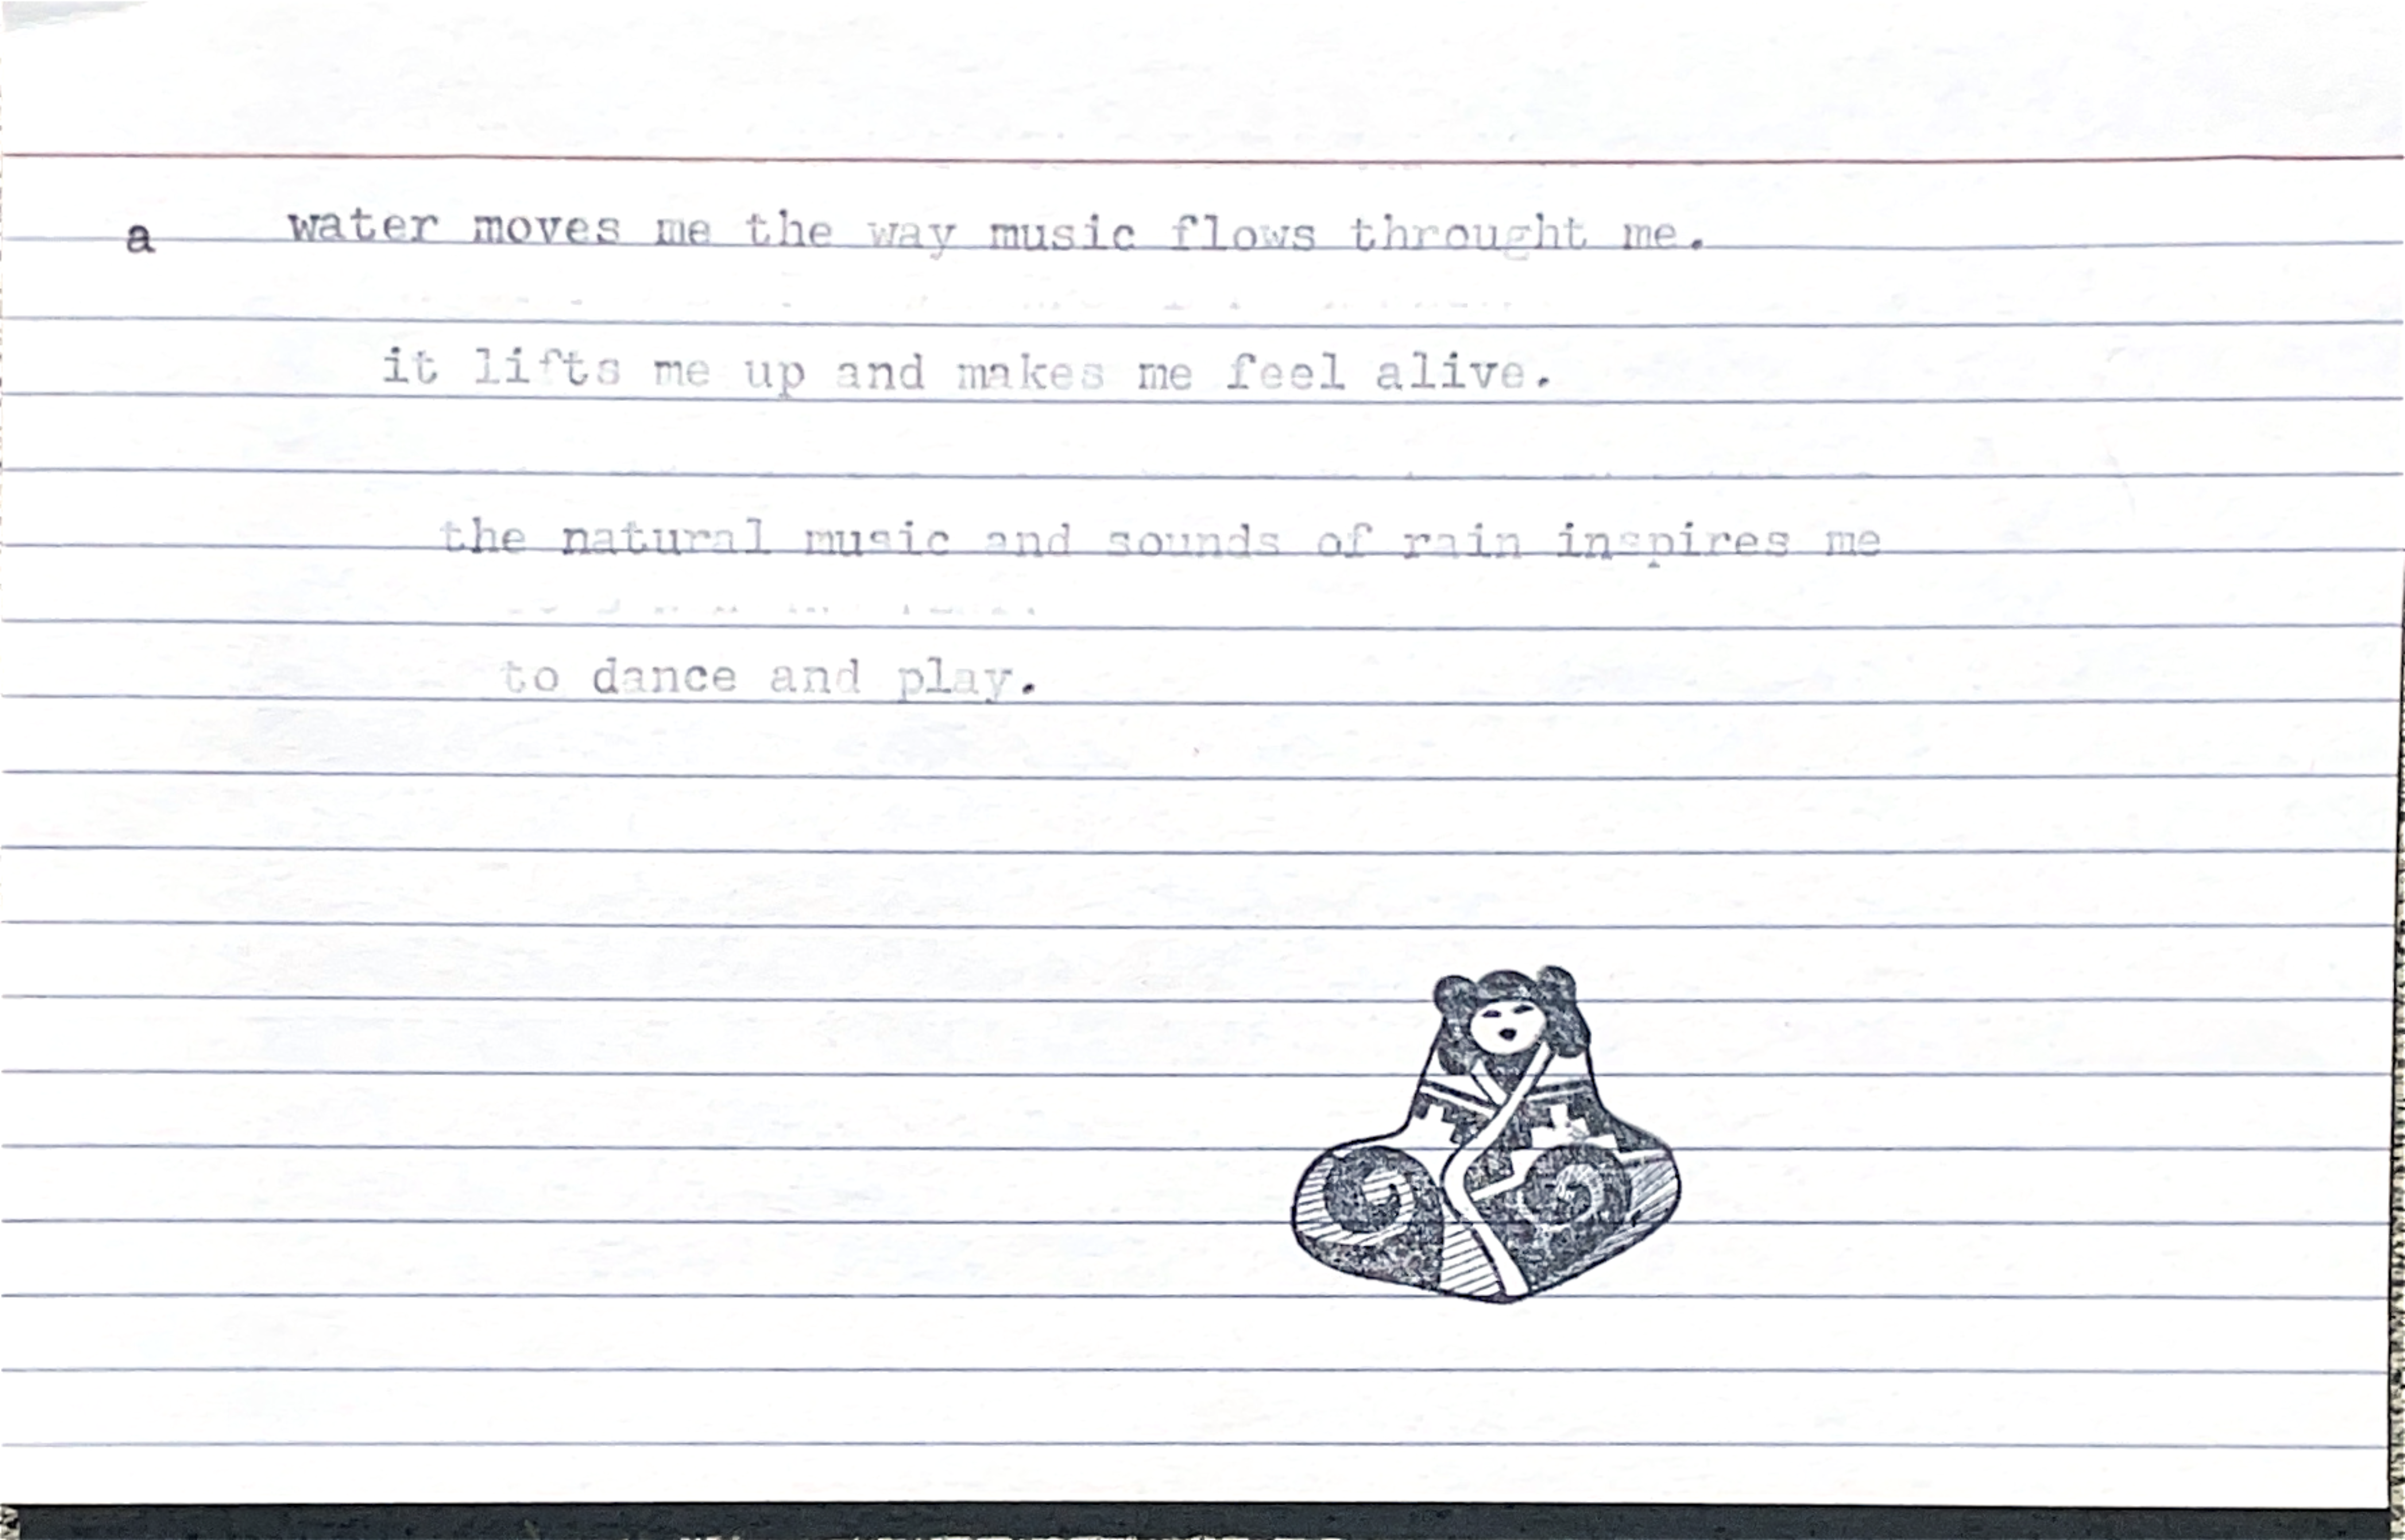 a water moves me the way music flows throught me.
it lifts me up and makes me feel alive.
the natural music and sounds of rain inspires me
to dance and play.